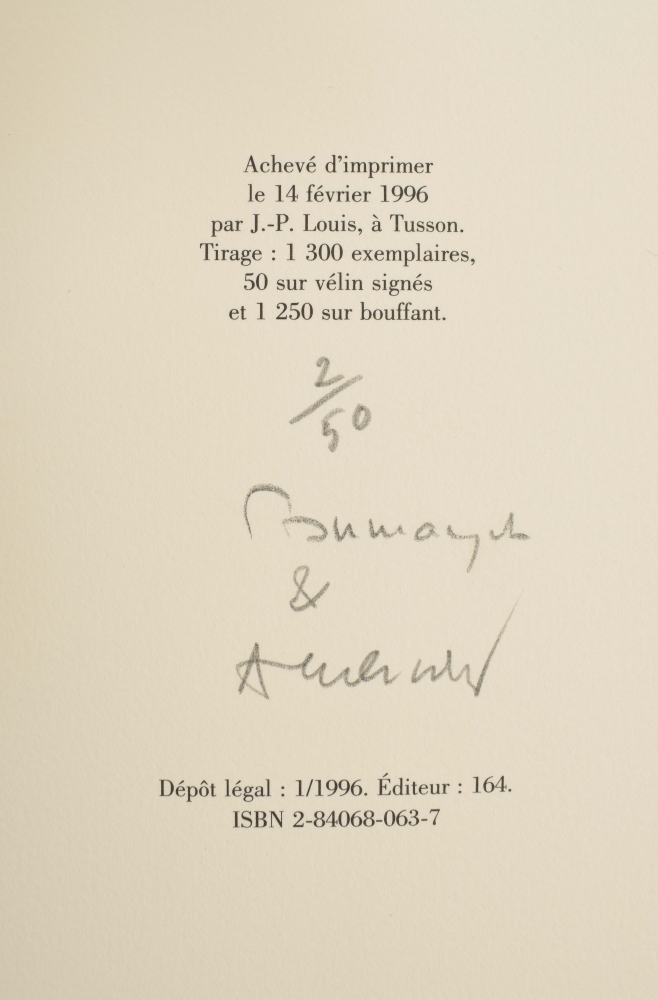 Achevé d'imprimer
le 14 février 1996
par J.-P. Louis, à Tusson.
Tirage : 1 300 exemplaires,
50 sur vélin signés
et 1 250 sur bouffant.
2/50
&
Dépôt légal : 1/1996. Éditeur : 164.
ISBN 2-84068-063-7